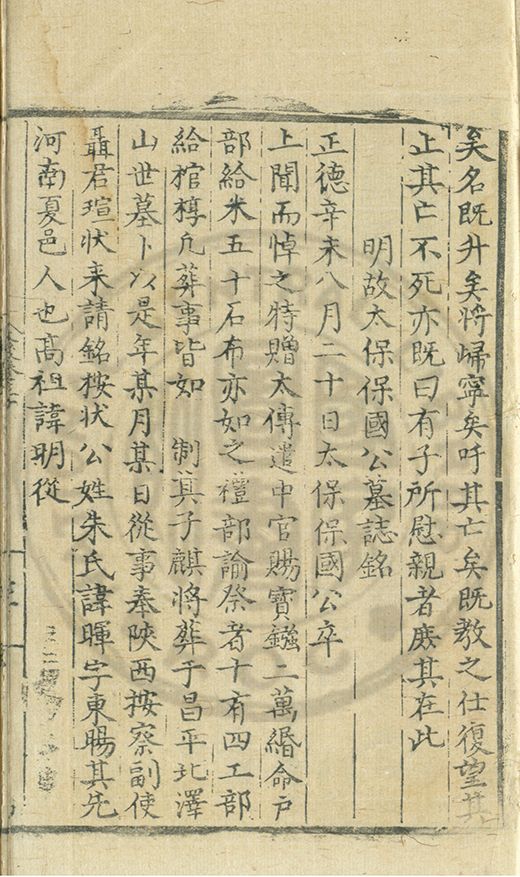 矣名既升矣將歸寧矣吁其亡矣既教之仕復望其
止其亡不死亦既曰有子所慰親者庶其在此
明故太保保國公墓誌銘
正德辛未八月二十日太保保國公卒
上聞而悼之特贈太傅遣中官賜寶鏹二萬緡命戶
部給米五十石布亦如之禮部諭祭者十有四工部
給棺槨凡葬事皆如 制寘子麒將葬于昌平北澤
山世墓卜以是年某月某日從事奉陝西按察副使
聶君瑄狀来請銘按狀公姓朱氏諱暉字東暘其先
河南夏邑人也高祖諱明從